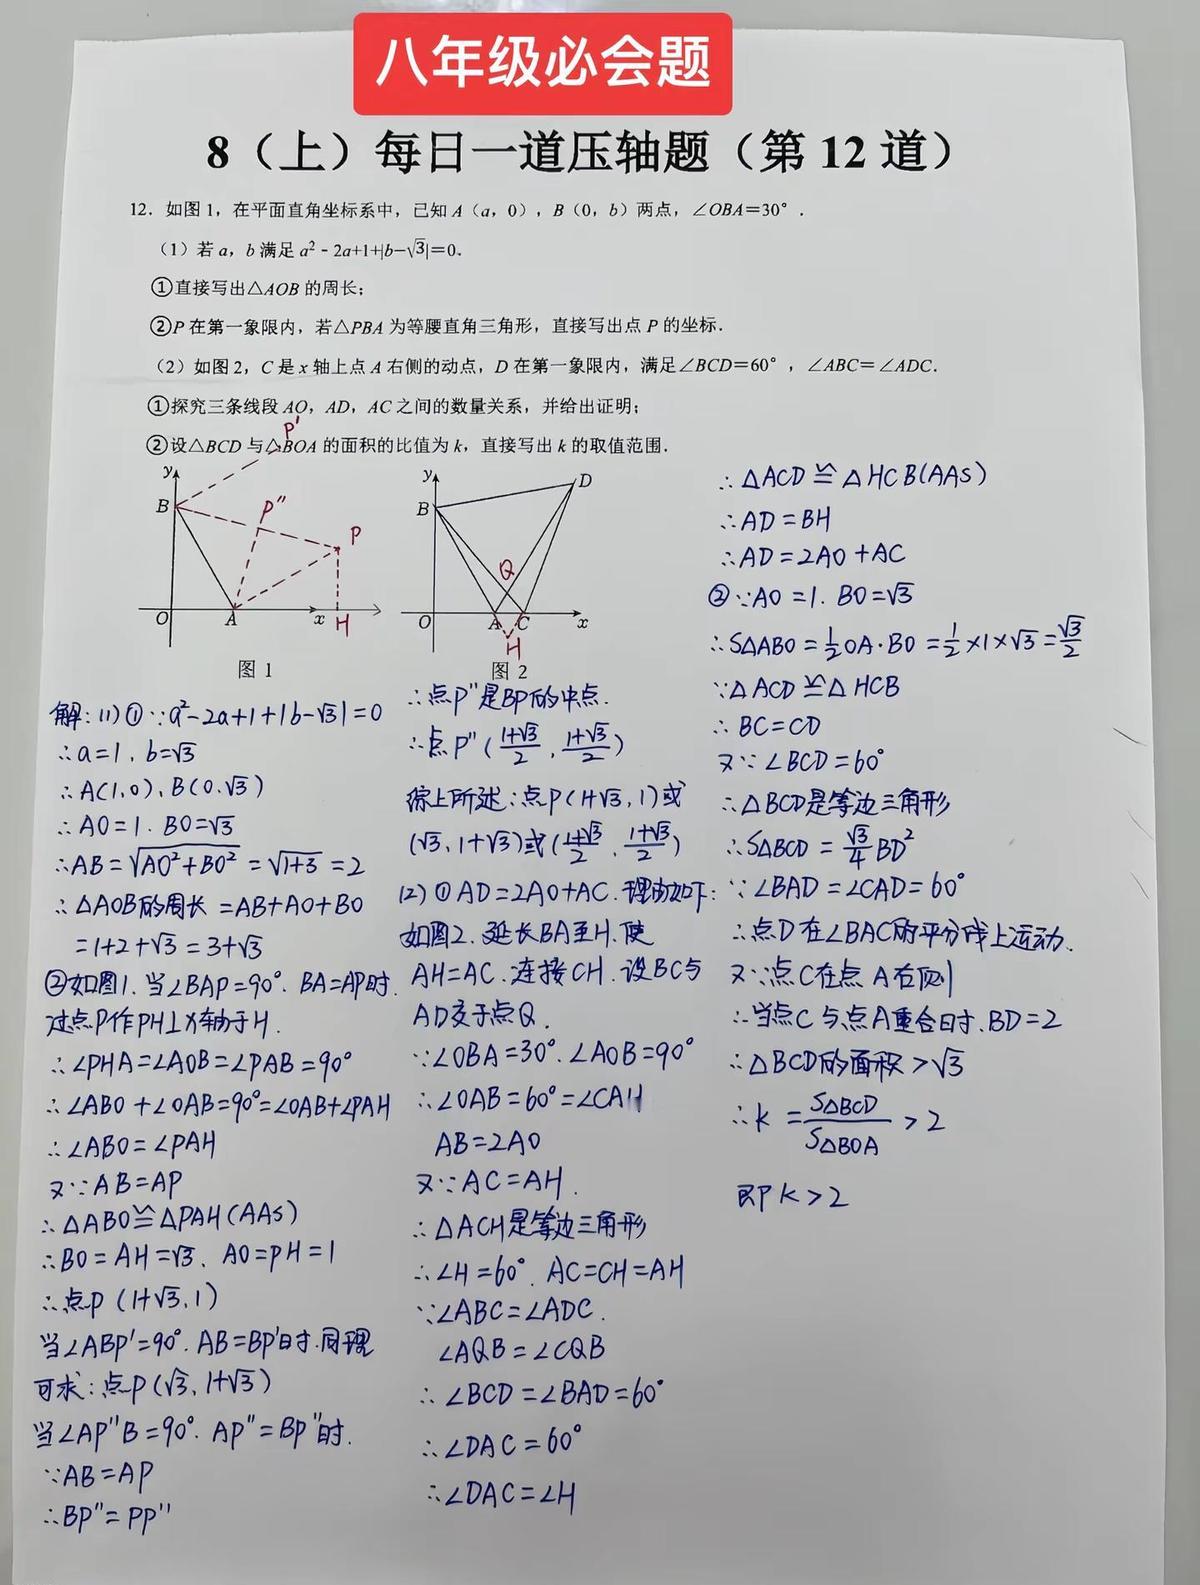 八年级必会题
8（上）每日一道压轴题（第 12 道）
12．如图1，在平面直角坐标系中，已知A（a，0），B（0，b）两点，∠OBA＝30°．
（1）若a，b满足a²﹣2a+1+|b﹣√3|＝0．
①直接写出△AOB的周长；
②P在第一象限内，若△PBA为等腰直角三角形，直接写出点P的坐标．
（2）如图2，C是x轴上点A右侧的动点，D在第一象限内，满足∠BCD＝60°，∠ABC＝∠ADC．
①探究三条线段AO，AD，AC之间的数量关系，并给出证明；
②设△BCD与△BOA的面积的比值为k，直接写出k的取值范围．
y
P'
B
P''
P
O
A
x
H
图 1
y
D
B
Q
O
A
C
x
H
图 2
解：(1)①∵a²-2a+1+|b-√3|=0
∴a=1，b=√3
∴A(1,0)、B(0,√3)
∴AO=1．BO=√3
∴AB=√(AO²+BO²)=√(1+3)=2
∴△AOB的周长=AB+AO+BO
=1+2+√3=3+√3
②如图1．当∠BAP=90°．BA=AP时．
过点P作PH⊥X轴于H．
∴∠PHA=∠AOB=∠PAB=90°
∴∠ABO+∠OAB=90°=∠OAB+∠PAH
∴∠ABO=∠PAH
又∵AB=AP
∴△ABO≌△PAH(AAS)
∴BO=AH=√3、AO=PH=1
∴点P(1+√3,1)
当∠ABP'=90°．AB=BP'时．同理
可求：点P(√3,1+√3)
当∠AP''B=90°．AP''=BP''时．
∵AB=AP
∴BP''=PP''
∴点P''是BP的中点．
∴点P''((1+√3)/2，(1+√3)/2)
综上所述：点P(1+√3,1)或
(√3,1+√3)或((1+√3)/2，(1+√3)/2)
(2)①AD=2AO+AC．理由如下：
如图2．延长BA至H．使
AH=AC．连接CH．设BC与
AD交于点Q．
∵∠OBA=30°．∠AOB=90°
∴∠OAB=60°=∠CAH
AB=2AO
又∵AC=AH．
∴△ACH是等边三角形
∴∠H=60°．AC=CH=AH
∵∠ABC=∠ADC．
∠AQB=∠CQB
∴∠BCD=∠BAD=60°
∴∠DAC=60°
∴∠DAC=∠H
∴△ACD≌△HCB(AAS)
∴AD=BH
∴AD=2AO+AC
②∵AO=1．BO=√3
∴S△ABO=1/2OA·BO=1/2×1×√3=√3/2
∵△ACD≌△HCB
∴BC=CD
又∵∠BCD=60°
∴△BCD是等边三角形
∴S△BCD=√3/4BD²
∵∠BAD=∠CAD=60°
∴点D在∠BAC的平分线上运动．
又∵点C在点A右侧
∴当点C与点A重合时．BD=2
∴△BCD的面积>√3
∴k=S△BCD/S△BOA>2
即k>2